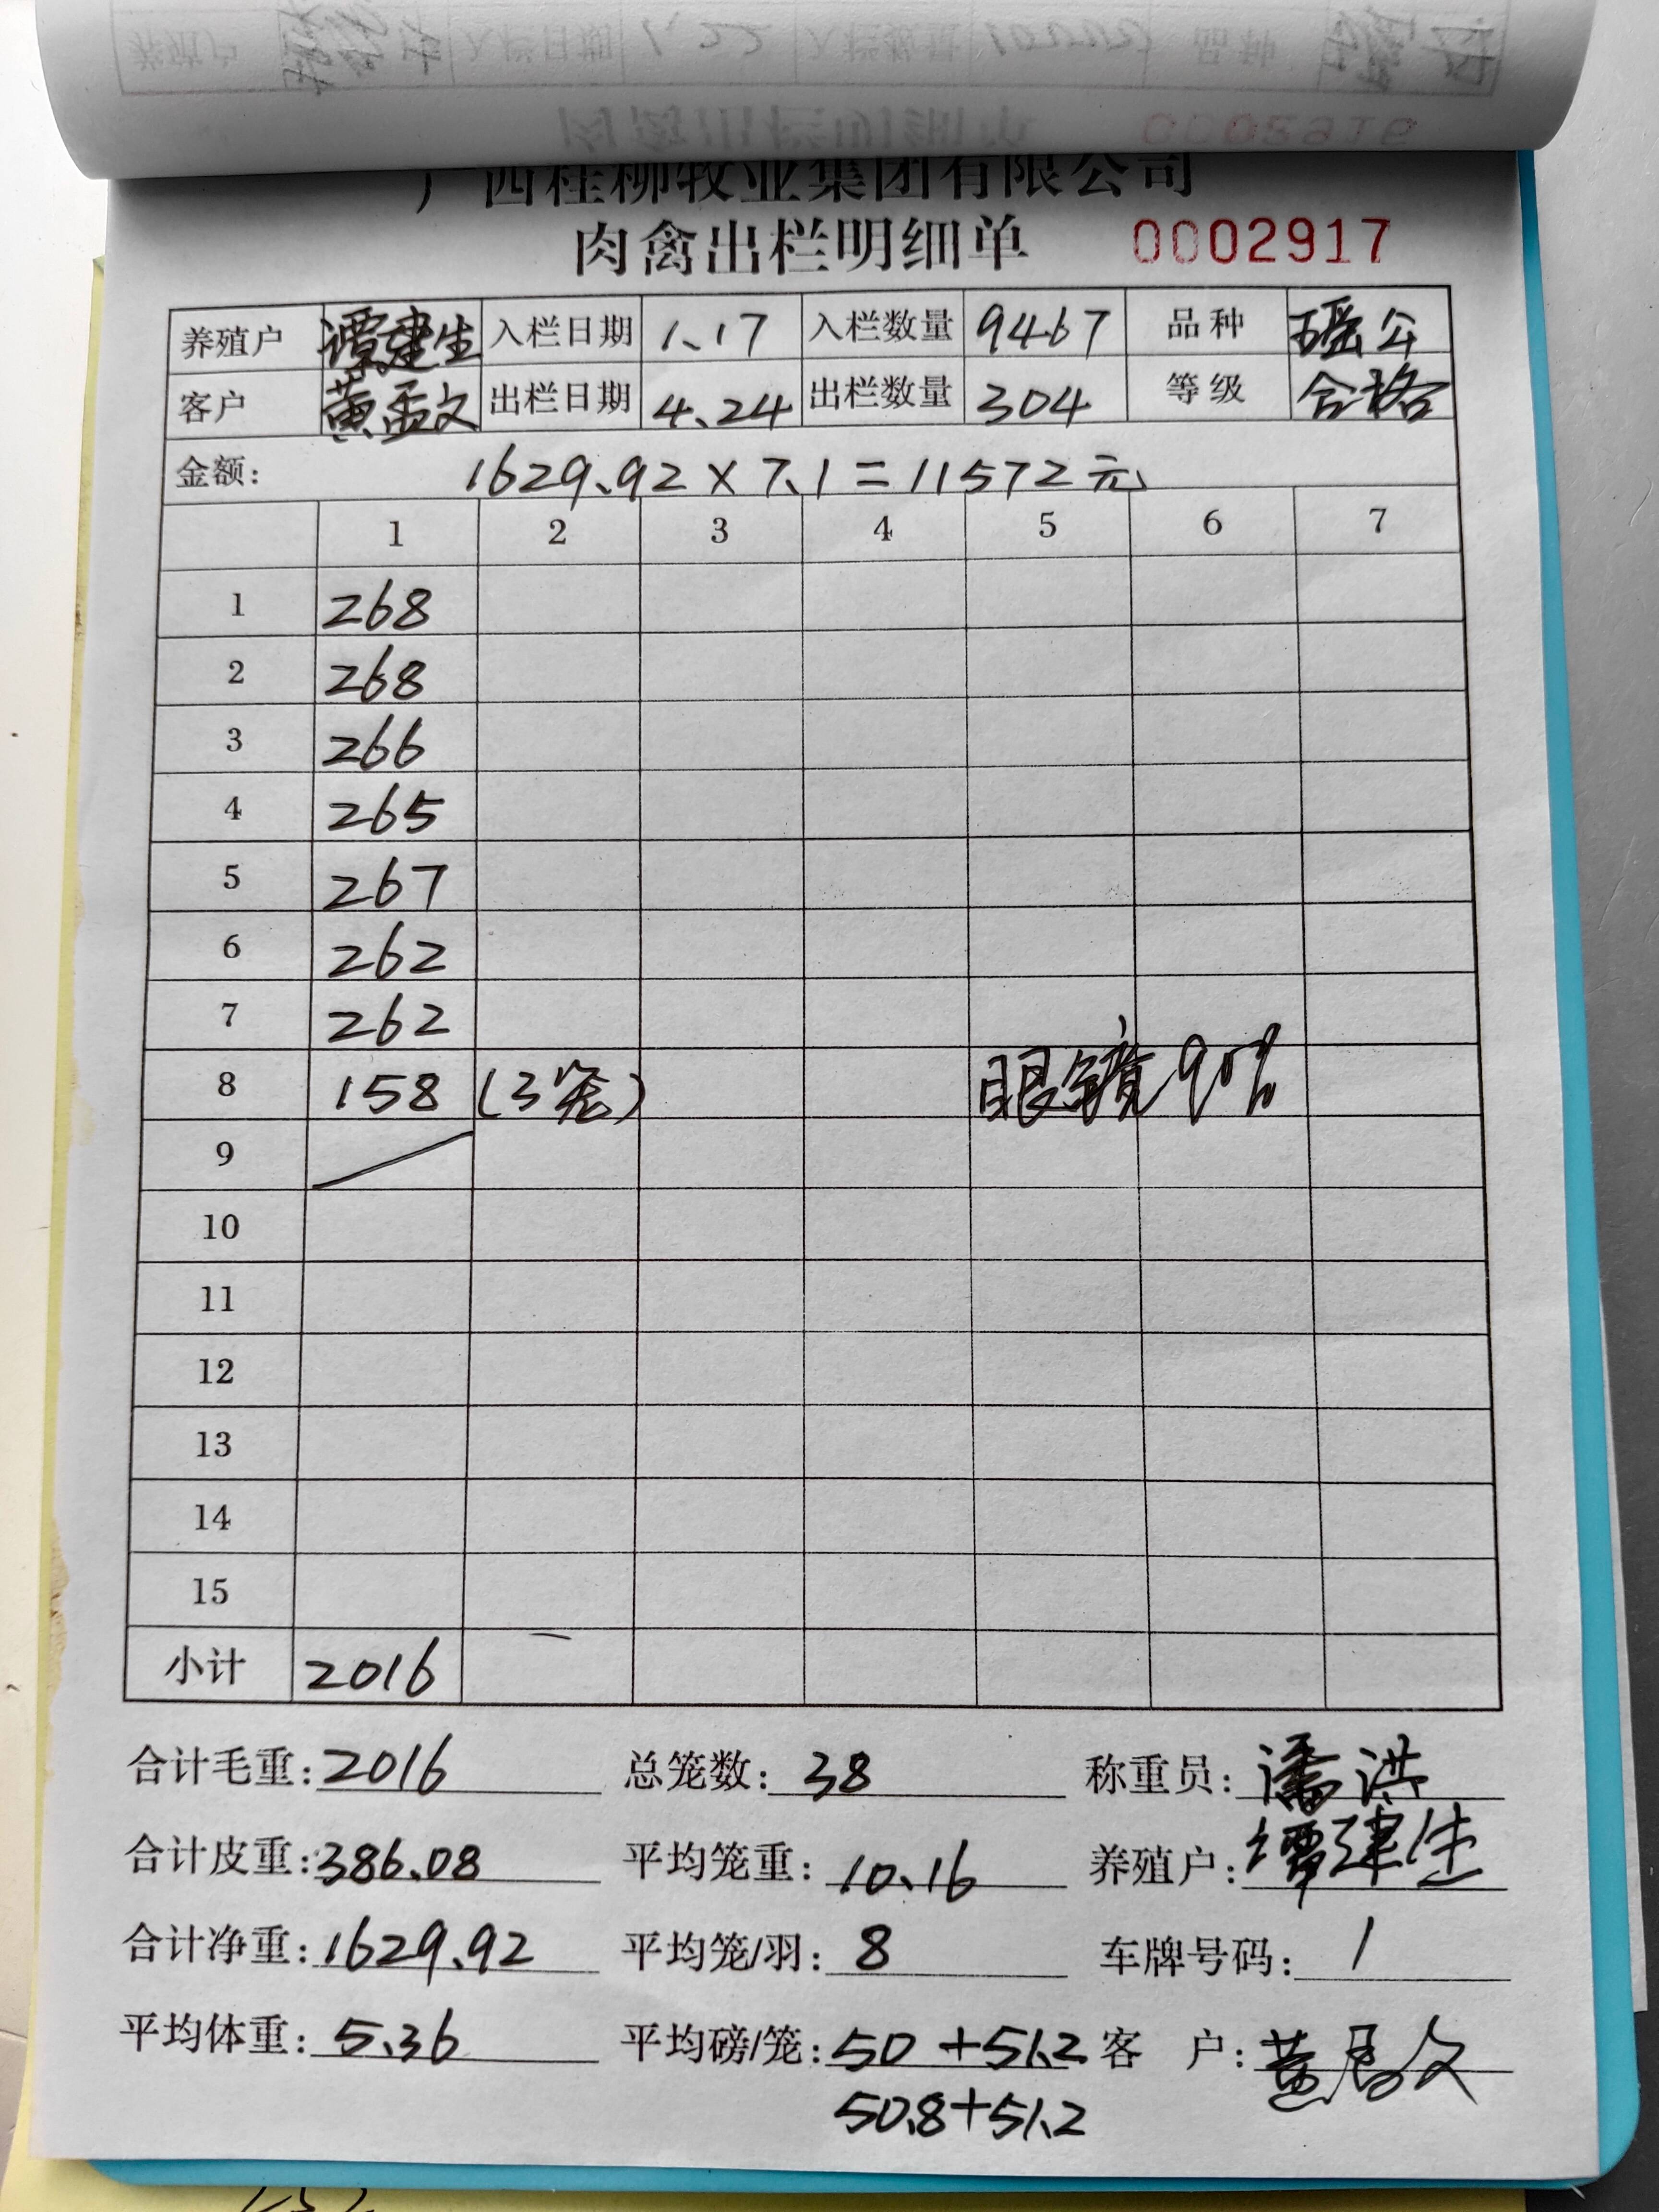 广西桂柳牧业集团有限公司
肉禽出栏明细单 0002917
养殖户 谭建生 入栏日期 1.17 入栏数量 9467 品种 瑶公
客户 黄孟文 出栏日期 4.24 出栏数量 304 等级 合格
金额: 1629.92×7.1=11572元
1 2 3 4 5 6 7
1 268
2 268
3 266
4 265
5 267
6 262
7 262
8 158 (3笼) 眼镜90%
9
10
11
12
13
14
15
小计 2016
合计毛重:2016 总笼数: 38 称重员: 潘洪
合计皮重:386.08 平均笼重: 10.16 养殖户: 谭建生
合计净重:1629.92 平均笼/羽: 8 车牌号码: 1
平均体重: 5.36 平均磅/笼:50+51.2 客户:
50.8+51.2